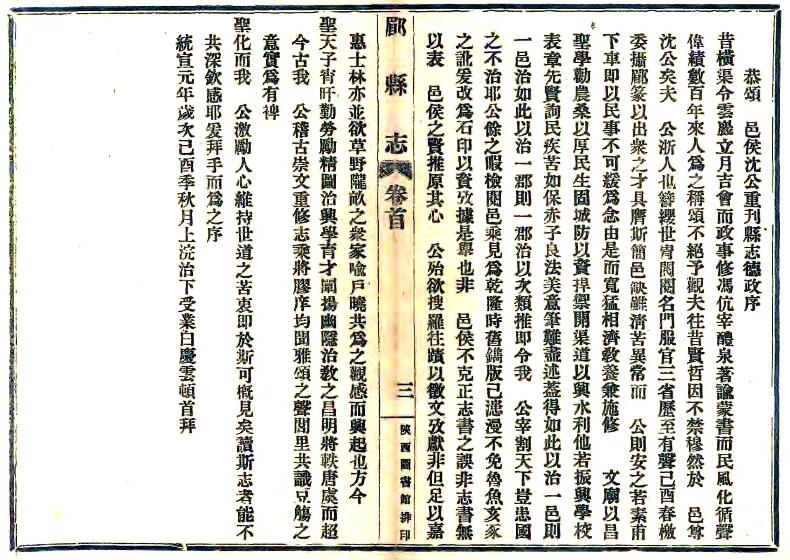 恭頌　邑侯沈公重刊縣志德政序
昔橫渠令雲巖立月吉會而政事修馮伉宰醴泉著諭蒙書而民風化循聲
偉績數百年來人爲之稱頌不絕予觀夫往昔賢哲因不禁穆然於　邑尊
沈公矣夫　公浙人也簪纓世胄閥閱名門服官三省歷至有聲己酉春檄
委攝郿篆以出衆之才具膺斯簡邑缺雖清苦異常而　公則安之若素甫
下車即以民事不可緩爲念由是而寬猛相濟教養兼施修　　文廟以昌
聖學勸農桑以厚民生固城防以資捍禦開渠道以興水利他若振興學校
表章先賢詢民疾苦如保赤子良法美意筆難盡述蓋得如此以治一邑則
一邑治如此以治一郡則一郡治以次類推即令我　公宰割天下豈患國
之不治耶公餘之暇檢閱邑乘見爲乾隆時舊鐫版已漶漫不免魯魚亥豕
之訛爰改爲石印以資攷據是舉也非　邑侯不克正志書之誤非志書無
以表　邑侯之賢推原其心　公殆欲搜羅往蹟以徵文攷獻非但足以嘉
郿縣志　卷首　三　陝西圖書館排印
惠士林亦並欲草野隴畝之衆家喻戶曉共爲之觀感而興起也方今
聖天子宵旰勤勞勵精圖治興學育才闡揚幽隱治教之昌明將軼唐虞而超
今古我　公稽古崇文重修志乘將膠庠均聞雅頌之聲閭里共識豆觴之
意實爲有裨
聖化而我　公激勵人心維持世道之苦衷即於斯可概見矣讀斯志者能不
共深欽感耶爰拜手而爲之序
統宣元年歲次己酉季秋月上浣治下受業白慶雲頓首拜